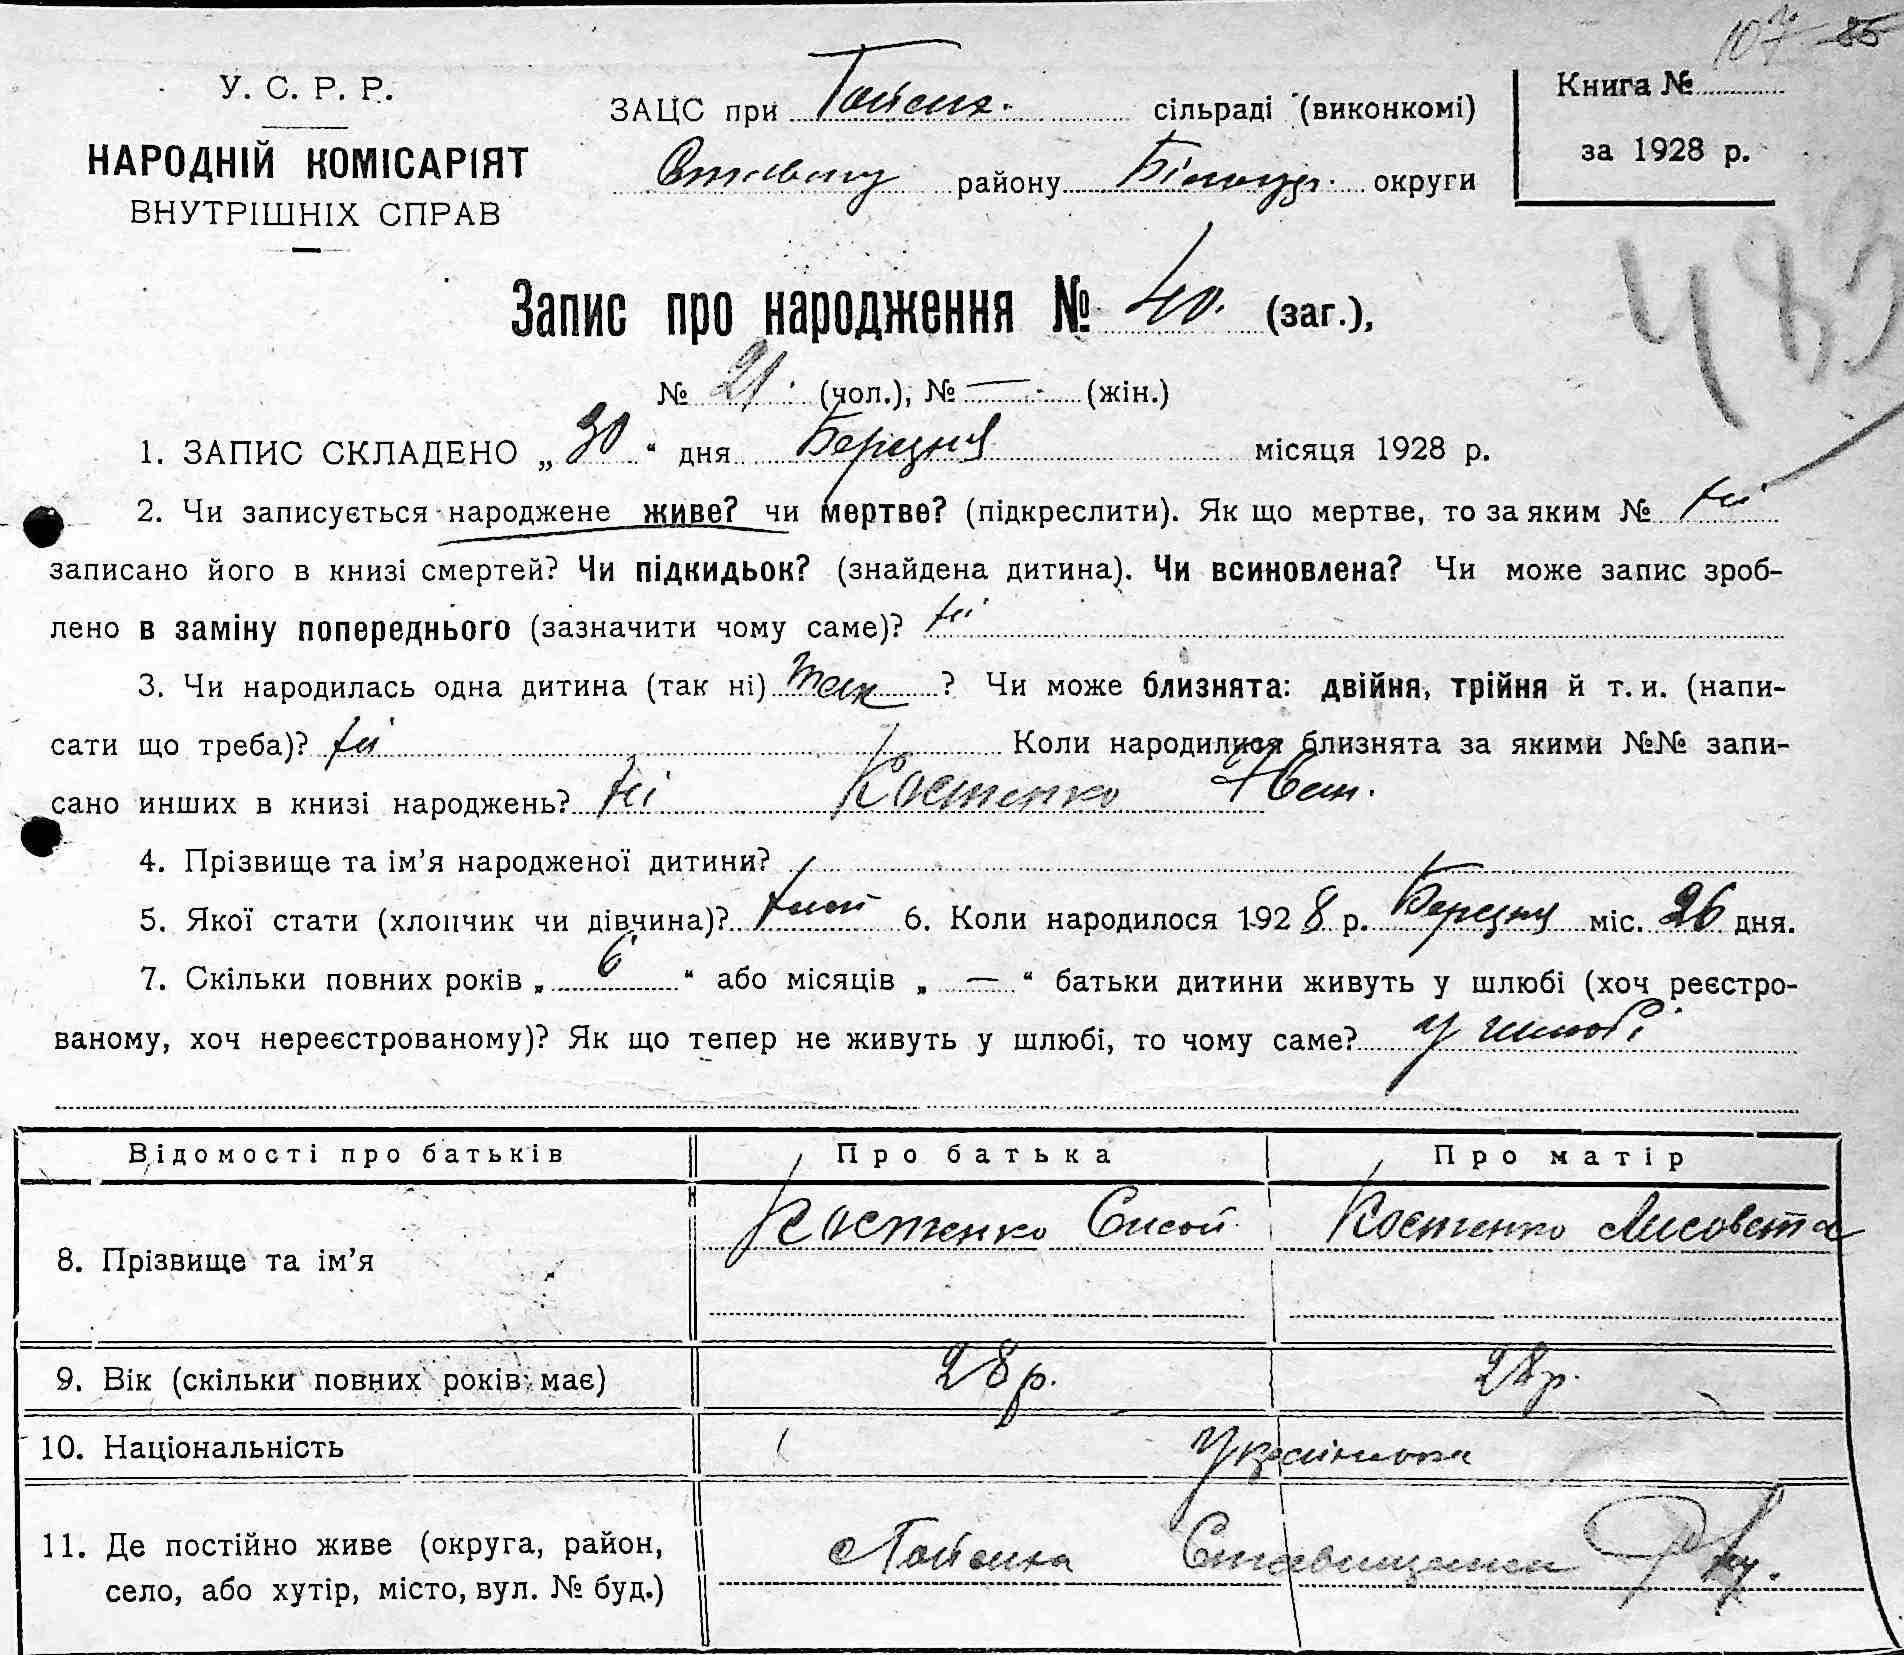 107 85
У. С. Р. Р.
НАРОДНІЙ КОМІСАРІЯТ
ВНУТРІШНІХ СПРАВ
ЗАЦС при Гойсих. сільраді (виконкомі)
району Білоцер. округи
Книга №
за 1928 р.
483
Запис про народження № 40. (заг.),
№ 21. (чол.), № — (жін.)
1. ЗАПИС СКЛАДЕНО „ 30 “ дня Березня місяця 1928 р.
2. Чи записується народжене живе? чи мертве? (підкреслити). Як що мертве, то за яким № ні
записано його в книзі смертей? Чи підкидьок? (знайдена дитина). Чи всиновлена? Чи може запис зроб-
лено в заміну попереднього (зазначити чому саме)? ні
3. Чи народилась одна дитина (так ні) так ? Чи може близнята: двійня, трійня й т. и. (напи-
сати що треба)? ні Коли народилися близнята за якими №№ запи-
сано инших в книзі народжень? ні Костенко
4. Прізвище та ім’я народженої дитини?
5. Якої стати (хлопчик чи дівчина)? 6. Коли народилося 1928 р. Березня міс. 26 дня.
7. Скільки повних років „ 6 “ або місяців „ — “ батьки дитини живуть у шлюбі (хоч реєстро-
ваному, хоч нереєстрованому)? Як що тепер не живуть у шлюбі, то чому саме? у шлюбі
Відомості про батьків Про батька Про матір
8. Прізвище та ім’я Костенко Сисой Костенко Лисовета
9. Вік (скільки повних років має) 28 р. 28 р.
10. Національність Українська
11. Де постійно живе (округа, район,
село, або хутір, місто, вул. № буд.) с Гойсиха Ставищанськ